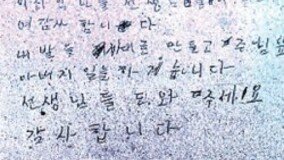 여 감사 합니다
내 발을 만들고 주님을
아버지 일을 하겠습니다
선생님들 도와 주세요
감사합니다